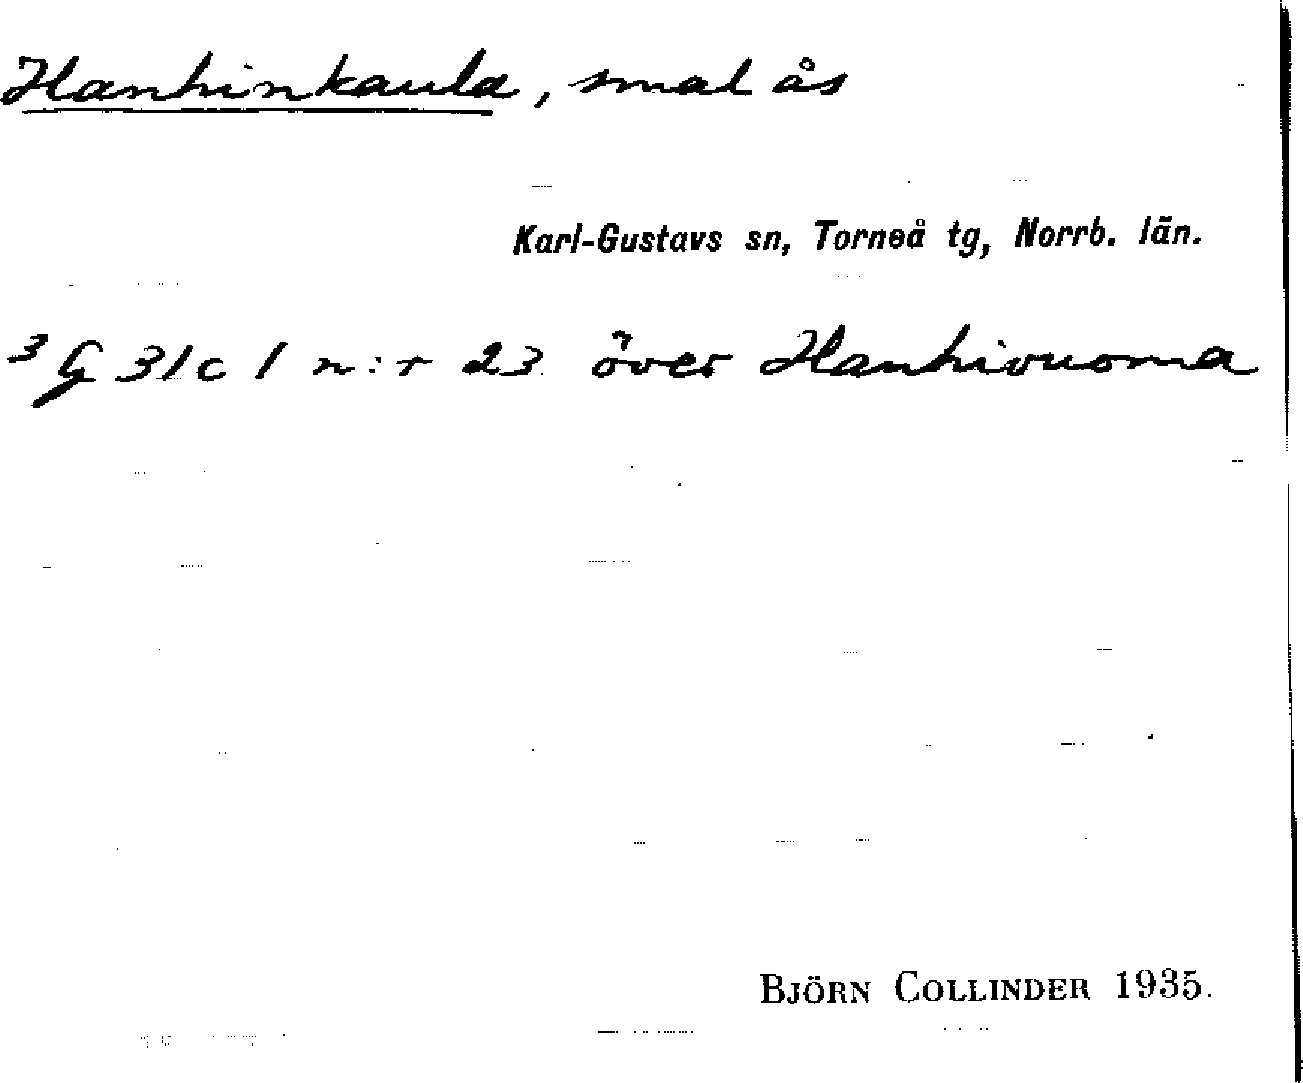 Hanhinkaula, smal ås
Karl-Gustavs sn, Torneå tg, Norrb. län.
3 G 31c 1 n:r 23 över Hanhivuoma
BJÖRN COLLINDER 1935.